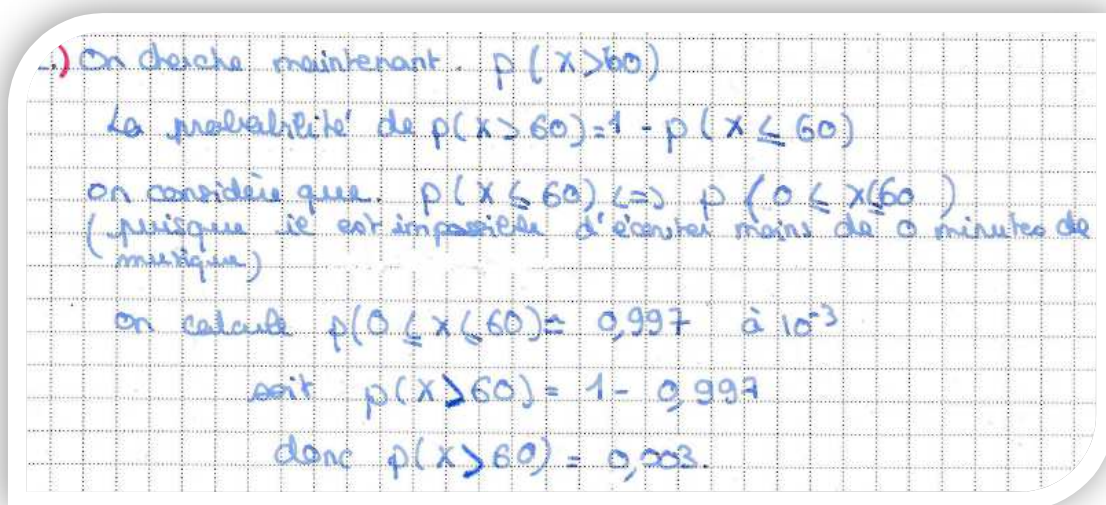 ..) On cherche maintenant. p(X>60)
La probabilité de p(X>60)=1-p(X≤60)
on considère que. p(X≤60)<=> p(0≤X≤60)
(puisque il est impossible d'écouter moins de 0 minutes de
musique)
on calcule p(0≤X≤60)= 0,997 à 10⁻³
soit p(X>60)= 1- 0,997
donc p(X>60) = 0,003.